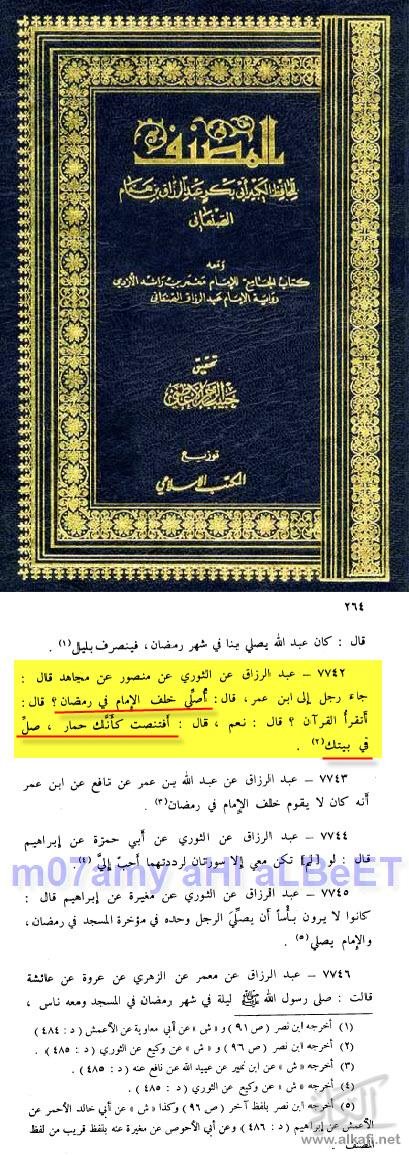 المصنف
للحافظ الكبير أبي بكر عبد الرزاق بن همام
الصنعاني
ومعه
كتاب الجامع للإمام معمر بن راشد الأزدي
رواية الإمام عبد الرزاق الصنعاني
تحقيق
حبيب الرحمن الأعظمي
توزيع
المكتب الإسلامي
٢٦٤
قال : كان عبد الله يصلي بنا في شهر رمضان ، فينصرف بليل(١) .
٧٧٤٢ – عبد الرزاق عن الثوري عن منصور عن مجاهد قال :
جاء رجل إلى ابن عمر ، قال : أُصلِّي خلف الإمام في رمضان ؟ قال :
أتقرأُ القرآن ؟ قال : نعم ، قال : أفتنصت كأَنَّك حمار ، صلِّ
في بيتك(٢) .
٧٧٤٣ – عبد الرزاق عن عبد الله بن عمر عن نافع عن ابن عمر
أنه كان لا يقوم خلف الإمام في رمضان(٣) .
٧٧٤٤ – عبد الرزاق عن الثوري عن أبي حمزة عن إبراهيم
قال : لو [لم] تكن معي إلا سورتان لرددتهما أحبّ إليَّ (٤)
m07amy aHl aLBeET
٧٧٤٥ – عبد الرزاق عن الثوري عن مغيرة عن إبراهيم قال :
كانوا لا يرون بأْساً أَن يصلِّيَ الرجل وحده في مؤخرة المسجد في رمضان ،
والإمام يصلي(٥) .
٧٧٤٦ – عبد الرزاق عن معمر عن الزهري عن عروة عن عائشة
قالت : صلى رسول الله ﷺ ليلة في شهر رمضان في المسجد ومعه ناس ،
(١) أخرجه ابن نصر (ص ٩١) و« ش » عن أبي معاوية عن الأعمش (د : ٤٨٤) .
(٢) أخرجه ابن نصر (ص ٩٦) و« ش » عن وكيع عن الثوري (د : ٤٨٥) .
(٣) أخرجه « ش » عن ابن نمير عن عبيد الله عن نافع عنه (د : ٤٨٥) .
(٤) أخرجه « ش » عن وكيع عن الثوري (د : ٤٨٥) .
(٥) أخرجه ابن نصر بلفظ آخر (ص ٩٦) وكذا « ش » عن أبي خالد الأحمر عن
الأعمش عن إبراهيم (د : ٤٨٦) وعن أبي الأحوص عن مغيرة عنه بلفظ قريب من لفظ
المصنف .
www.alkafi.net